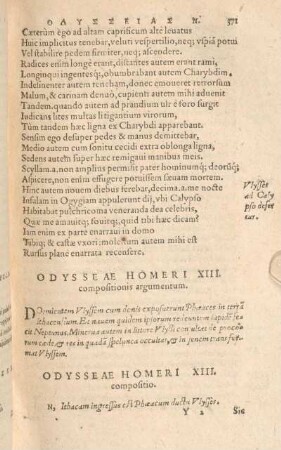 ΟΔΥΣΣΕΙΑΣ Ν. 371
Cæterùm ego ad altam caprificum altè leuatus
Huic implicitus tenebar, veluti vespertilio, neq; vspiã potui
Vel stabilire pedem firmiter, neq; ascendere.
Radices enim longè erant, distantes autem erant rami,
Longinqui ingentésq;, obumbrabant autem Charybdim.
Indesinenter autem tenebam, donec euomeret retrorsum
Malum, & carinam denuò, cupienti autem mihi aduenit
Tandem. quando autem ad prandium uir è foro surgit
Iudicans lites multas litigantium virorum,
Tùm tandem hæc ligna ex Charybdi apparebant.
Sensim ego desuper pedes & manus demittebar,
Medio autem cum sonitu cecidi extra oblonga ligna,
Sedens autem super hæc remigaui manibus meis.
Scyllam. a. non ampliùs permisit pater hominumq; deorũq;
Aspicere, non enim effugere potuissem sæuam mortem.
Hinc autem nouem diebus ferebar, decima. a. me nocte
Insulam in Ogygiam appulerunt dij, vbi Calypso
Habitabat pulchricoma veneranda dea celebris,
Quæ me amauitq; fouitq;, quid tibi hæc dicam?
Iam enim ex parte enarraui in domo
Tibiq; & castæ vxori: molestum autem mihi est
Rursus plane enarrata recensere.
Vlysses
ad Caly
pso defer
tur.
ODYSSEAE HOMERI XIII.
compositionis argumentum.
DOrmientem Vlyssem cum donis exposuerunt Phæaces in terrã
Ithacensium. Et nauem quidem ipsorum redeuntem lapidẽ fecit
Neptunus. Minerua autem in littore Vlyssi consultat de procorum
cæde, & res in quadã spelunca occultat, & in senem transformat
Vlyssem.
ODYSSEAE HOMERI XIII.
compositio.
N, Ithacam ingressus est Phæacum ductu Vlysses.
Y 2 Sic